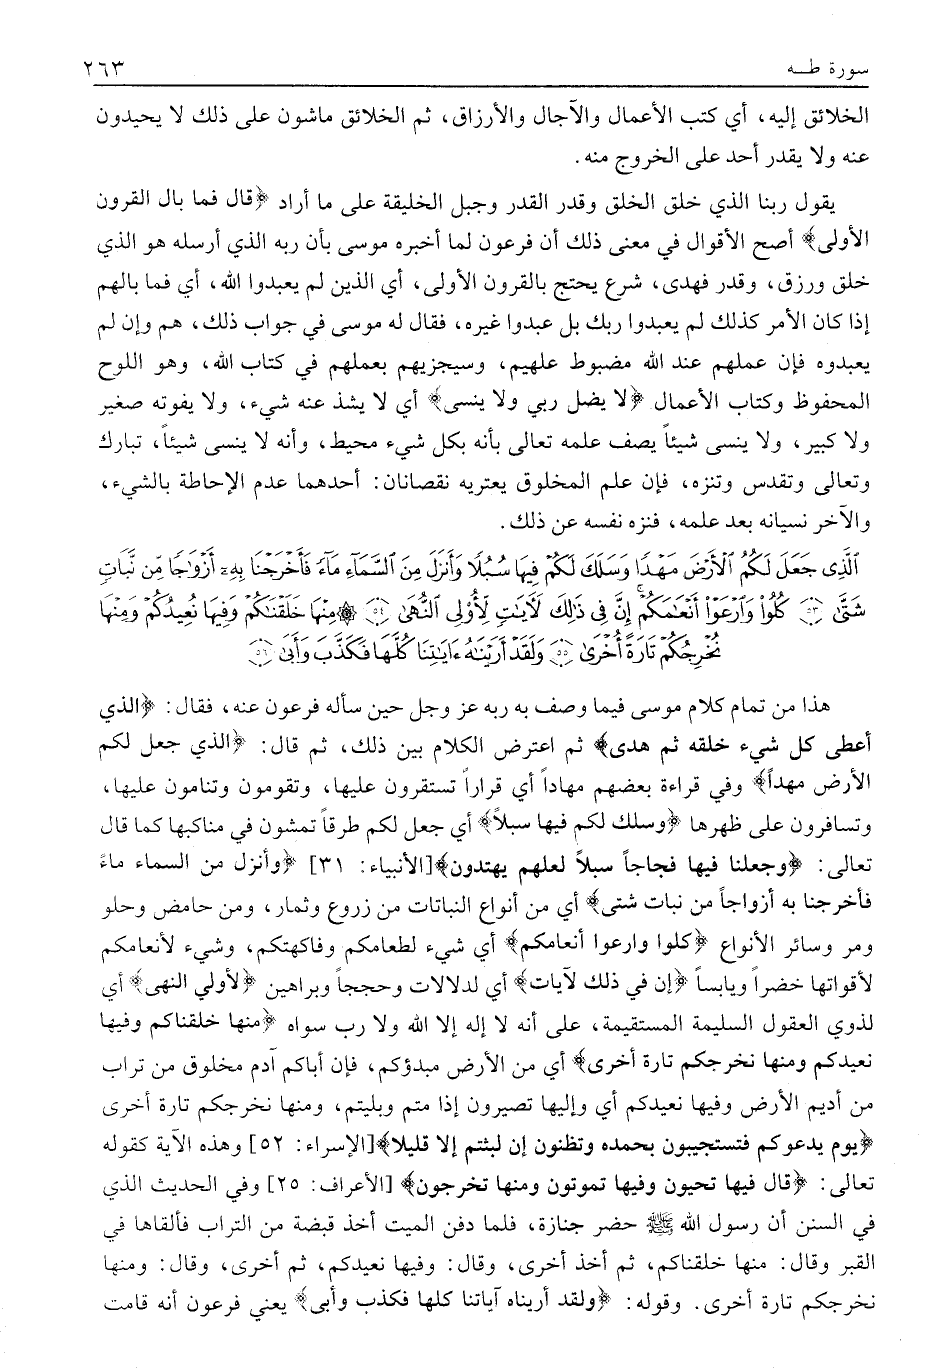 سورة طـه ٢٦٣
الخلائق إليه، أي كتب الأعمال والآجال والأرزاق، ثم الخلائق ماشون على ذلك لا يحيدون
عنه ولا يقدر أحد على الخروج منه.
يقول ربنا الذي خلق الخلق وقدر القدر وجبل الخليقة على ما أراد ﴿قال فما بال القرون
الأولى﴾ أصح الأقوال في معنى ذلك أن فرعون لما أخبره موسى بأن ربه الذي أرسله هو الذي
خلق ورزق، وقدر فهدى، شرع يحتج بالقرون الأولى، أي الذين لم يعبدوا الله، أي فما بالهم
إذا كان الأمر كذلك لم يعبدوا ربك بل عبدوا غيره، فقال له موسى في جواب ذلك، هم وإن لم
يعبدوه فإن عملهم عند الله مضبوط علهيم، وسيجزيهم بعملهم في كتاب الله، وهو اللوح
المحفوظ وكتاب الأعمال ﴿لا يضل ربي ولا ينسى﴾ أي لا يشذ عنه شيء، ولا يفوته صغير
ولا كبير، ولا ينسى شيئاً يصف علمه تعالى بأنه بكل شيء محيط، وأنه لا ينسى شيئاً، تبارك
وتعالى وتقدس وتنزه، فإن علم المخلوق يعتريه نقصانان: أحدهما عدم الإحاطة بالشيء،
والآخر نسيانه بعد علمه، فنزه نفسه عن ذلك.
ٱلَّذِى جَعَلَ لَكُمُ ٱلْأَرْضَ مَهْدًا وَسَلَكَ لَكُمْ فِيهَا سُبُلًا وَأَنزَلَ مِنَ ٱلسَّمَآءِ مَآءً فَأَخْرَجْنَا بِهِۦٓ أَزْوَٰجًا مِّن نَّبَاتٍ
شَتَّىٰ ﴿٥٣﴾ كُلُوا۟ وَٱرْعَوْا۟ أَنْعَٰمَكُمْ ۗ إِنَّ فِى ذَٰلِكَ لَءَايَٰتٍ لِّأُو۟لِى ٱلنُّهَىٰ ﴿٥٤﴾ ۞ مِنْهَا خَلَقْنَٰكُمْ وَفِيهَا نُعِيدُكُمْ وَمِنْهَا
نُخْرِجُكُمْ تَارَةً أُخْرَىٰ ﴿٥٥﴾ وَلَقَدْ أَرَيْنَٰهُ ءَايَٰتِنَا كُلَّهَا فَكَذَّبَ وَأَبَىٰ ﴿٥٦﴾
هذا من تمام كلام موسى فيما وصف به ربه عز وجل حين سأله فرعون عنه، فقال: ﴿الذي
أعطى كل شيء خلقه ثم هدى﴾ ثم اعترض الكلام بين ذلك، ثم قال: ﴿الذي جعل لكم
الأرض مهداً﴾ وفي قراءة بعضهم مهاداً أي قراراً تستقرون عليها، وتقومون وتنامون عليها،
وتسافرون على ظهرها ﴿وسلك لكم فيها سبلاً﴾ أي جعل لكم طرقاً تمشون في مناكبها كما قال
تعالى: ﴿وجعلنا فيها فجاجاً سبلاً لعلهم يهتدون﴾[الأنبياء: ٣١] ﴿وأنزل من السماء ماءً
فأخرجنا به أزواجاً من نبات شتى﴾ أي من أنواع النباتات من زروع وثمار، ومن حامض وحلو
ومر وسائر الأنواع ﴿كلوا وارعوا أنعامكم﴾ أي شيء لطعامكم وفاكهتكم، وشيء لأنعامكم
لأقواتها خضراً ويابساً ﴿إن في ذلك لآيات﴾ أي لدلالات وحججاً وبراهين ﴿لأولي النهى﴾ أي
لذوي العقول السليمة المستقيمة، على أنه لا إله إلا الله ولا رب سواه ﴿منها خلقناكم وفيها
نعيدكم ومنها نخرجكم تارة أخرى﴾ أي من الأرض مبدؤكم، فإن أباكم آدم مخلوق من تراب
من أديم الأرض وفيها نعيدكم أي وإليها تصيرون إذا متم وبليتم، ومنها نخرجكم تارة أخرى
﴿يوم يدعوكم فتستجيبون بحمده وتظنون إن لبثتم إلا قليلا﴾[الإسراء: ٥٢] وهذه الآية كقوله
تعالى: ﴿قال فيها تحيون وفيها تموتون ومنها تخرجون﴾ [الأعراف: ٢٥] وفي الحديث الذي
في السنن أن رسول الله ﷺ حضر جنازة، فلما دفن الميت أخذ قبضة من التراب فألقاها في
القبر وقال: منها خلقناكم، ثم أخذ أخرى، وقال: وفيها نعيدكم، ثم أخرى، وقال: ومنها
نخرجكم تارة أخرى. وقوله: ﴿ولقد أريناه آياتنا كلها فكذب وأبى﴾ يعني فرعون أنه قامت